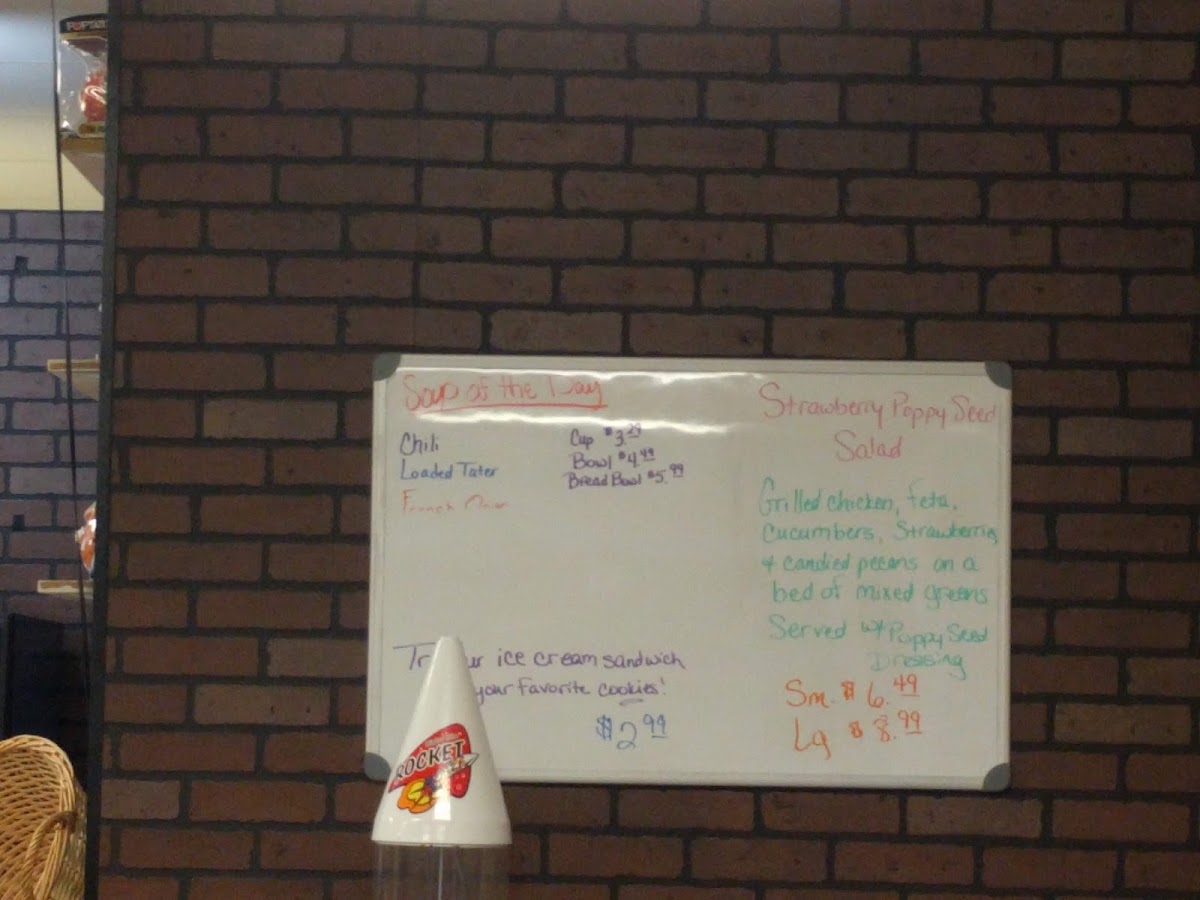 Soup of the Day
Chili
Loaded Tater
French
Cup $3.29
Bowl $4.49
Bread Bowl $5.99
Strawberry Poppy Seed
Salad
Grilled chicken, feta,
Cucumbers, Strawberries
& candied pecans on a
bed of mixed greens
Served w/ Poppy Seed
Dressing
Sm. $6.49
Lg $8.99
ice cream sandwich
your favorite cookies!
$2.99
ROCKET